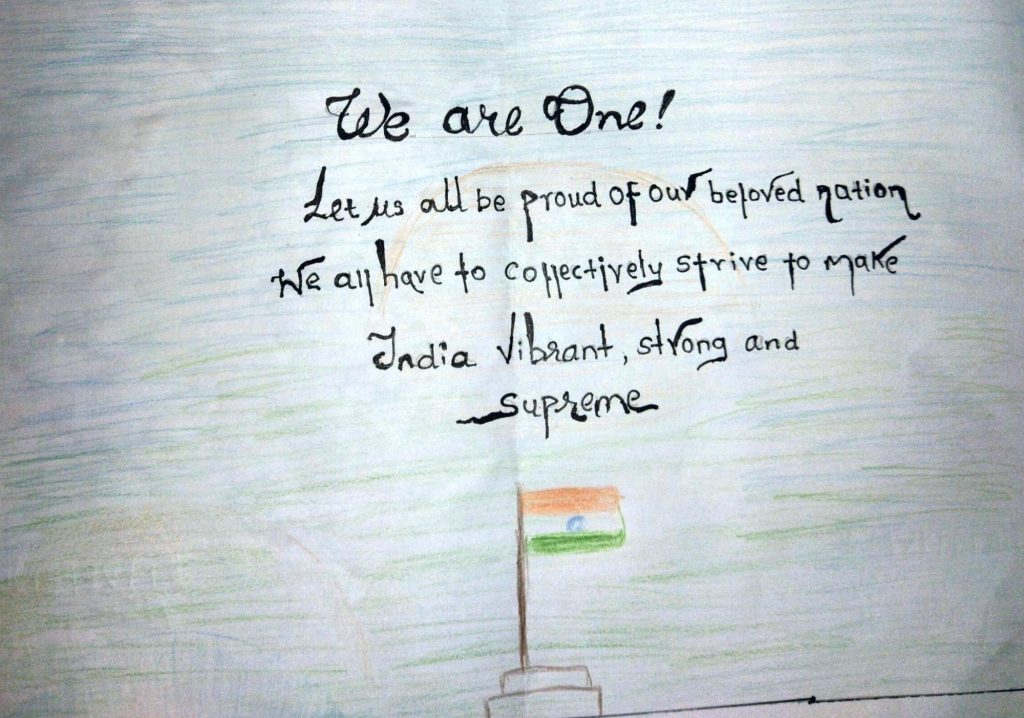 We are One!
Let us all be proud of our beloved nation
We all have to collectively strive to make
India vibrant, strong and
supreme